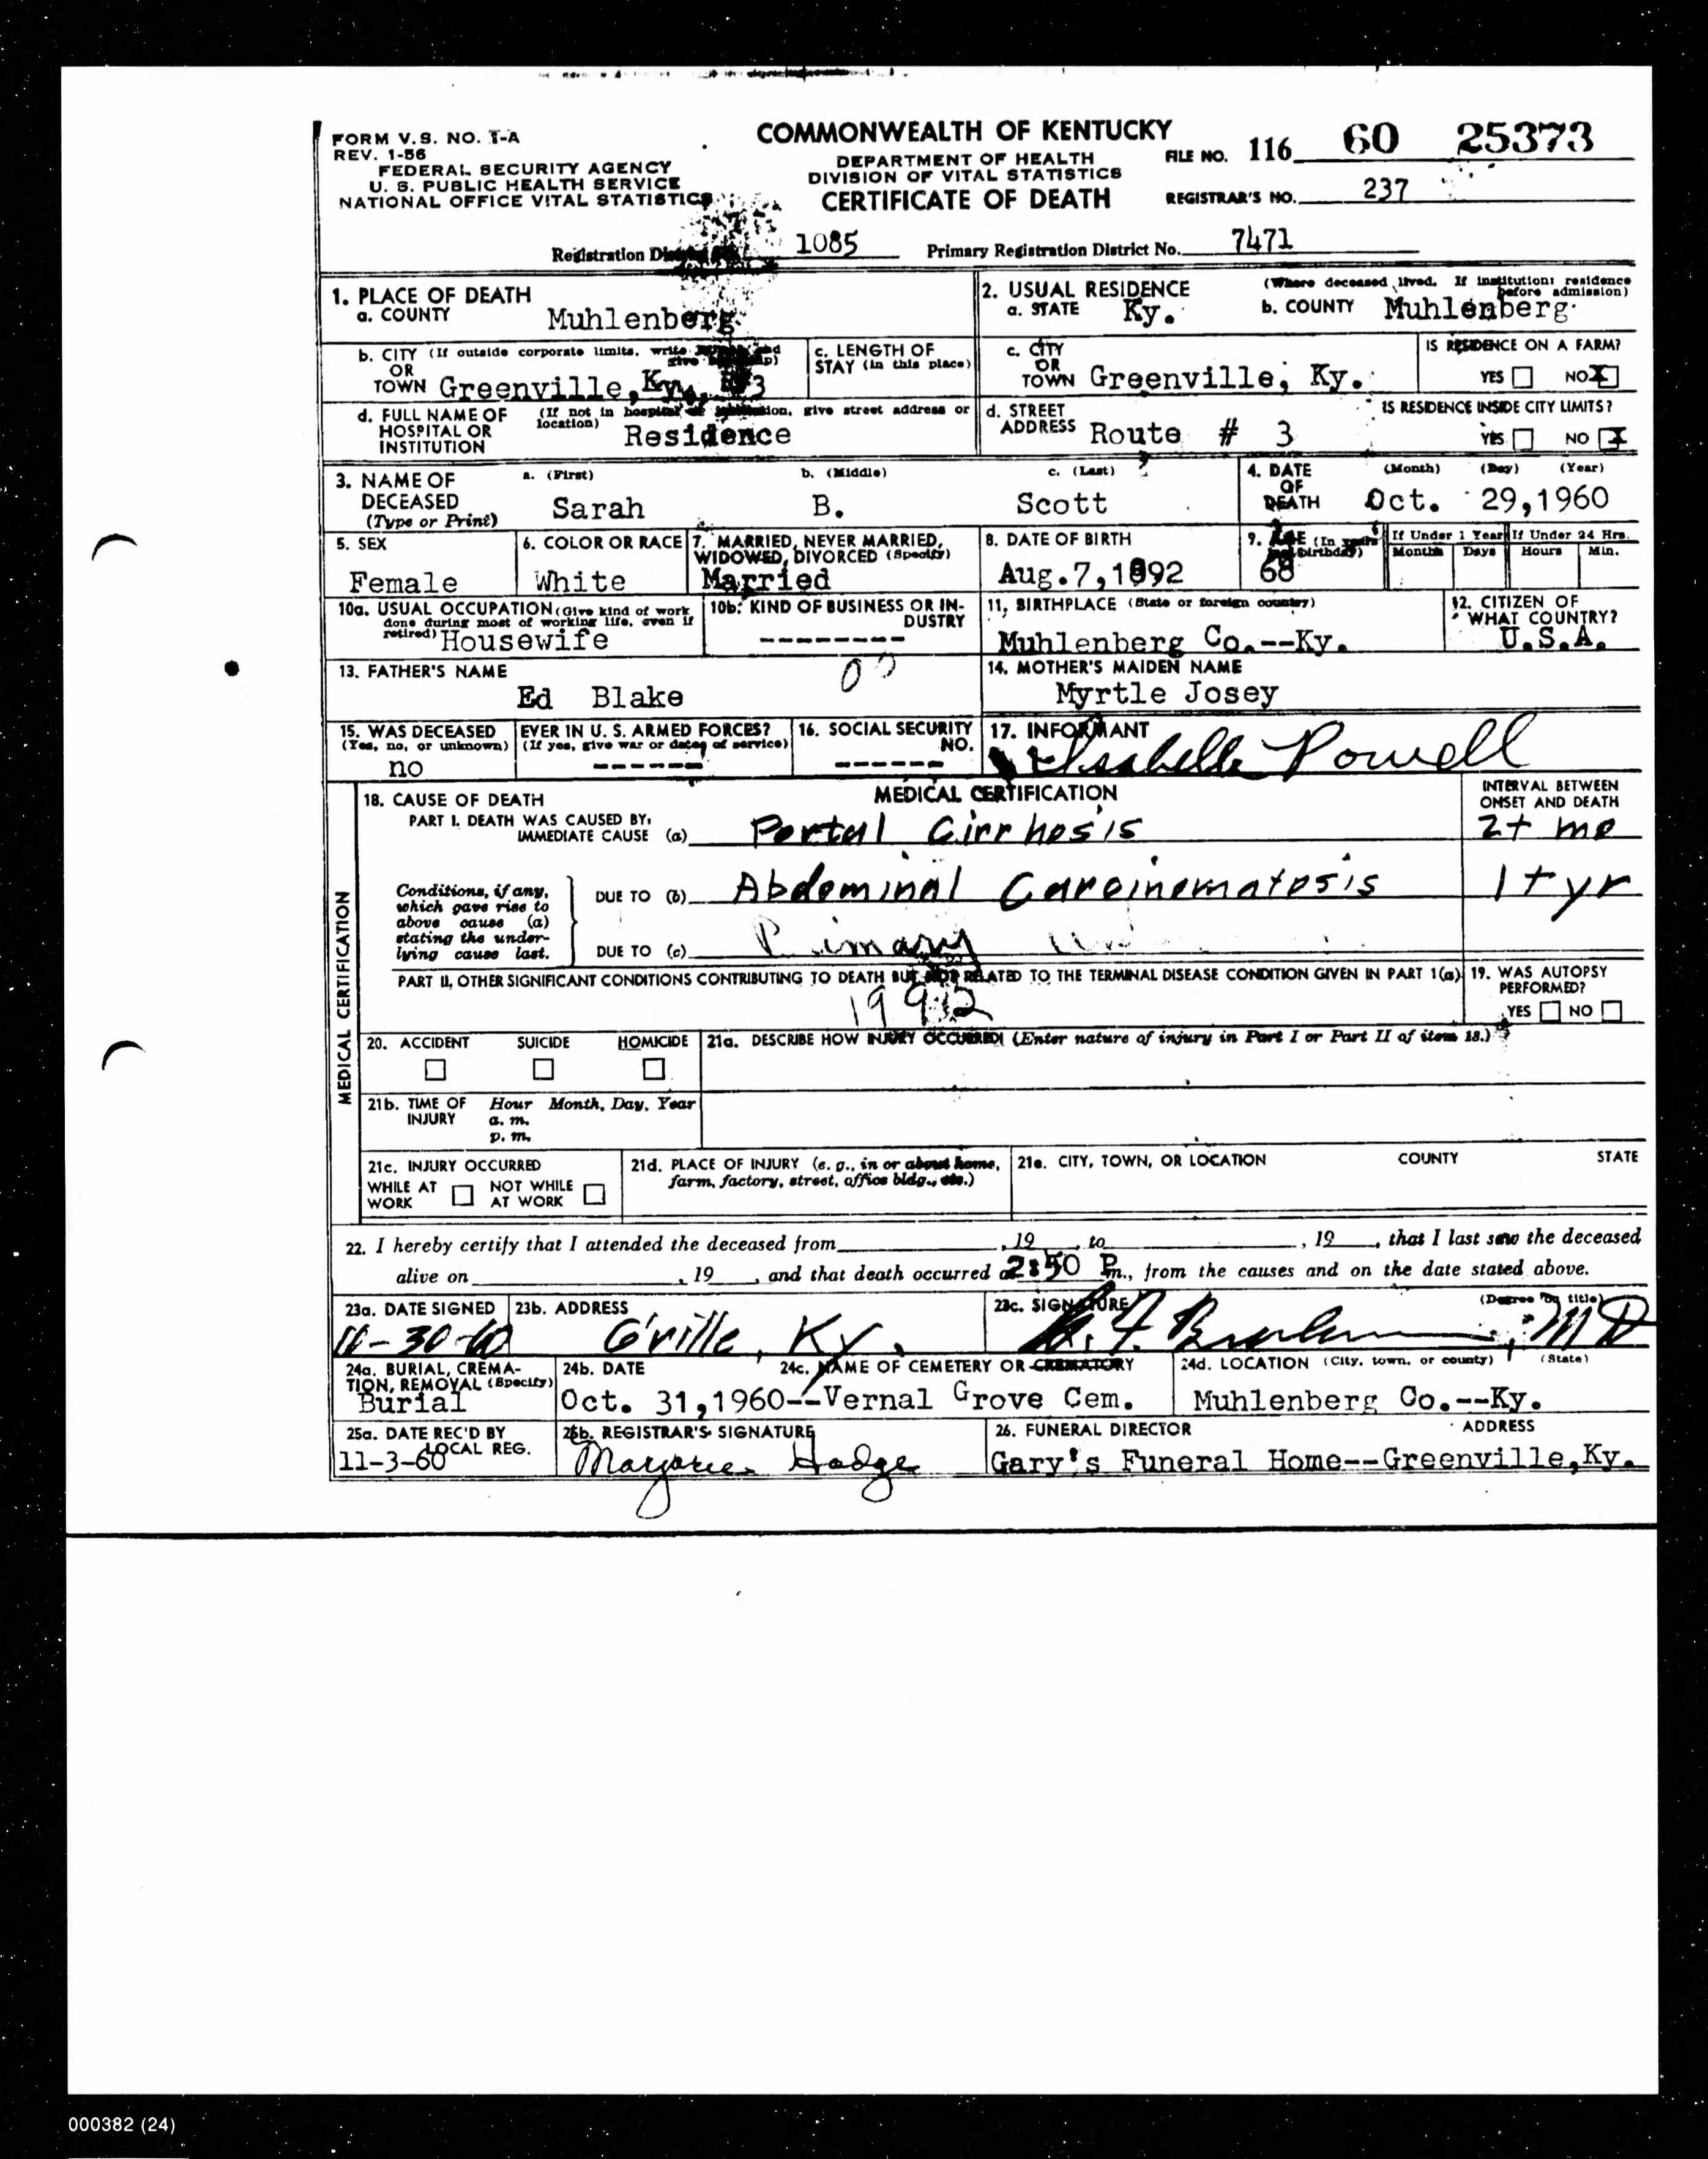 FORM V.S. NO. 1-A
REV. 1-56
FEDERAL SECURITY AGENCY
U. S. PUBLIC HEALTH SERVICE
NATIONAL OFFICE VITAL STATISTICS
COMMONWEALTH OF KENTUCKY
DEPARTMENT OF HEALTH
DIVISION OF VITAL STATISTICS
CERTIFICATE OF DEATH
FILE NO. 116 60 25373
REGISTRAR'S NO. 237
Registration 1085 Primary Registration District No. 7471
1. PLACE OF DEATH
a. COUNTY Muhlenberg
2. USUAL RESIDENCE (Where deceased lived. If institution: residence before admission)
a. STATE Ky. b. COUNTY Muhlenberg
b. CITY (If outside corporate limits, write
OR
TOWN Greenville, Ky.
c. LENGTH OF
STAY (in this place)
c. CITY
OR
TOWN Greenville, Ky.
IS RESIDENCE ON A FARM?
YES NO X
d. FULL NAME OF (If not in hospital or institution, give street address or
HOSPITAL OR location)
INSTITUTION Residence
d. STREET
ADDRESS Route # 3
IS RESIDENCE INSIDE CITY LIMITS?
YES NO X
3. NAME OF
DECEASED
(Type or Print)
a. (First) b. (Middle) c. (Last)
Sarah B. Scott
4. DATE
OF
DEATH
(Month) (Day) (Year)
Oct. 29,1960
5. SEX
Female
6. COLOR OR RACE
White
7. MARRIED, NEVER MARRIED,
WIDOWED, DIVORCED (Specify)
Married
8. DATE OF BIRTH
Aug.7,1892
9. AGE (In years
birthday)
68
If Under 1 Year If Under 24 Hrs.
Months Days Hours Min.
10a. USUAL OCCUPATION (Give kind of work
done during most of working life, even if
retired) Housewife
10b. KIND OF BUSINESS OR IN-
DUSTRY
--------
11. BIRTHPLACE (State or foreign country)
Muhlenberg Co.--Ky.
12. CITIZEN OF
WHAT COUNTRY?
U.S.A.
13. FATHER'S NAME
Ed Blake
14. MOTHER'S MAIDEN NAME
Myrtle Josey
15. WAS DECEASED EVER IN U. S. ARMED FORCES?
(Yes, no, or unknown) (If yes, give war or dates of service)
no ------
16. SOCIAL SECURITY
NO.
------
17. INFORMANT
Isabelle Powell
MEDICAL CERTIFICATION
18. CAUSE OF DEATH
MEDICAL CERTIFICATION
INTERVAL BETWEEN
ONSET AND DEATH
PART I. DEATH WAS CAUSED BY:
IMMEDIATE CAUSE (a) Portal Cirrhosis 2+ mo
Conditions, if any,
which gave rise to
above cause (a)
stating the under-
lying cause last.
DUE TO (b) Abdominal Carcinomatosis 1+ yr
DUE TO (c) Primary
PART II. OTHER SIGNIFICANT CONDITIONS CONTRIBUTING TO DEATH BUT NOT RELATED TO THE TERMINAL DISEASE CONDITION GIVEN IN PART 1(a)
19. WAS AUTOPSY
PERFORMED?
YES NO
20. ACCIDENT SUICIDE HOMICIDE
21a. DESCRIBE HOW INJURY OCCURRED: (Enter nature of injury in Part I or Part II of item 18.)
21b. TIME OF INJURY
Hour Month, Day, Year
a. m.
p. m.
21c. INJURY OCCURRED
WHILE AT WORK NOT WHILE AT WORK
21d. PLACE OF INJURY (e. g., in or about home,
farm, factory, street, office bldg., etc.)
21e. CITY, TOWN, OR LOCATION COUNTY STATE
22. I hereby certify that I attended the deceased from , 19 , to , 19 , that I last saw the deceased
alive on , 19 , and that death occurred at 2:50 P.m., from the causes and on the date stated above.
23a. DATE SIGNED
-30-60
23b. ADDRESS
G'ville, Ky.
23c. SIGNATURE (Degree or title)
MD
24a. BURIAL, CREMA-
TION, REMOVAL (Specify)
Burial
24b. DATE
Oct. 31,1960--
24c. NAME OF CEMETERY OR CREMATORY
Vernal Grove Cem.
24d. LOCATION (City, town, or county) (State)
Muhlenberg Co.--Ky.
25a. DATE REC'D BY
LOCAL REG.
11-3-60
25b. REGISTRAR'S SIGNATURE
Marjorie Hodge
26. FUNERAL DIRECTOR ADDRESS
Gary's Funeral Home--Greenville,Ky.
000382 (24)